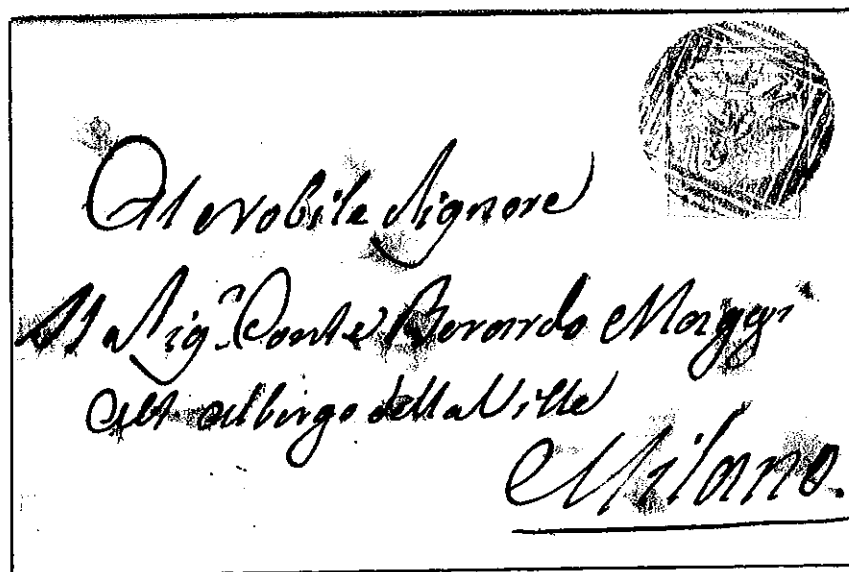 Al Nobile Signore
Il Sig.r Conte Berardo Maggi
All Albergo della Ville
Milano.